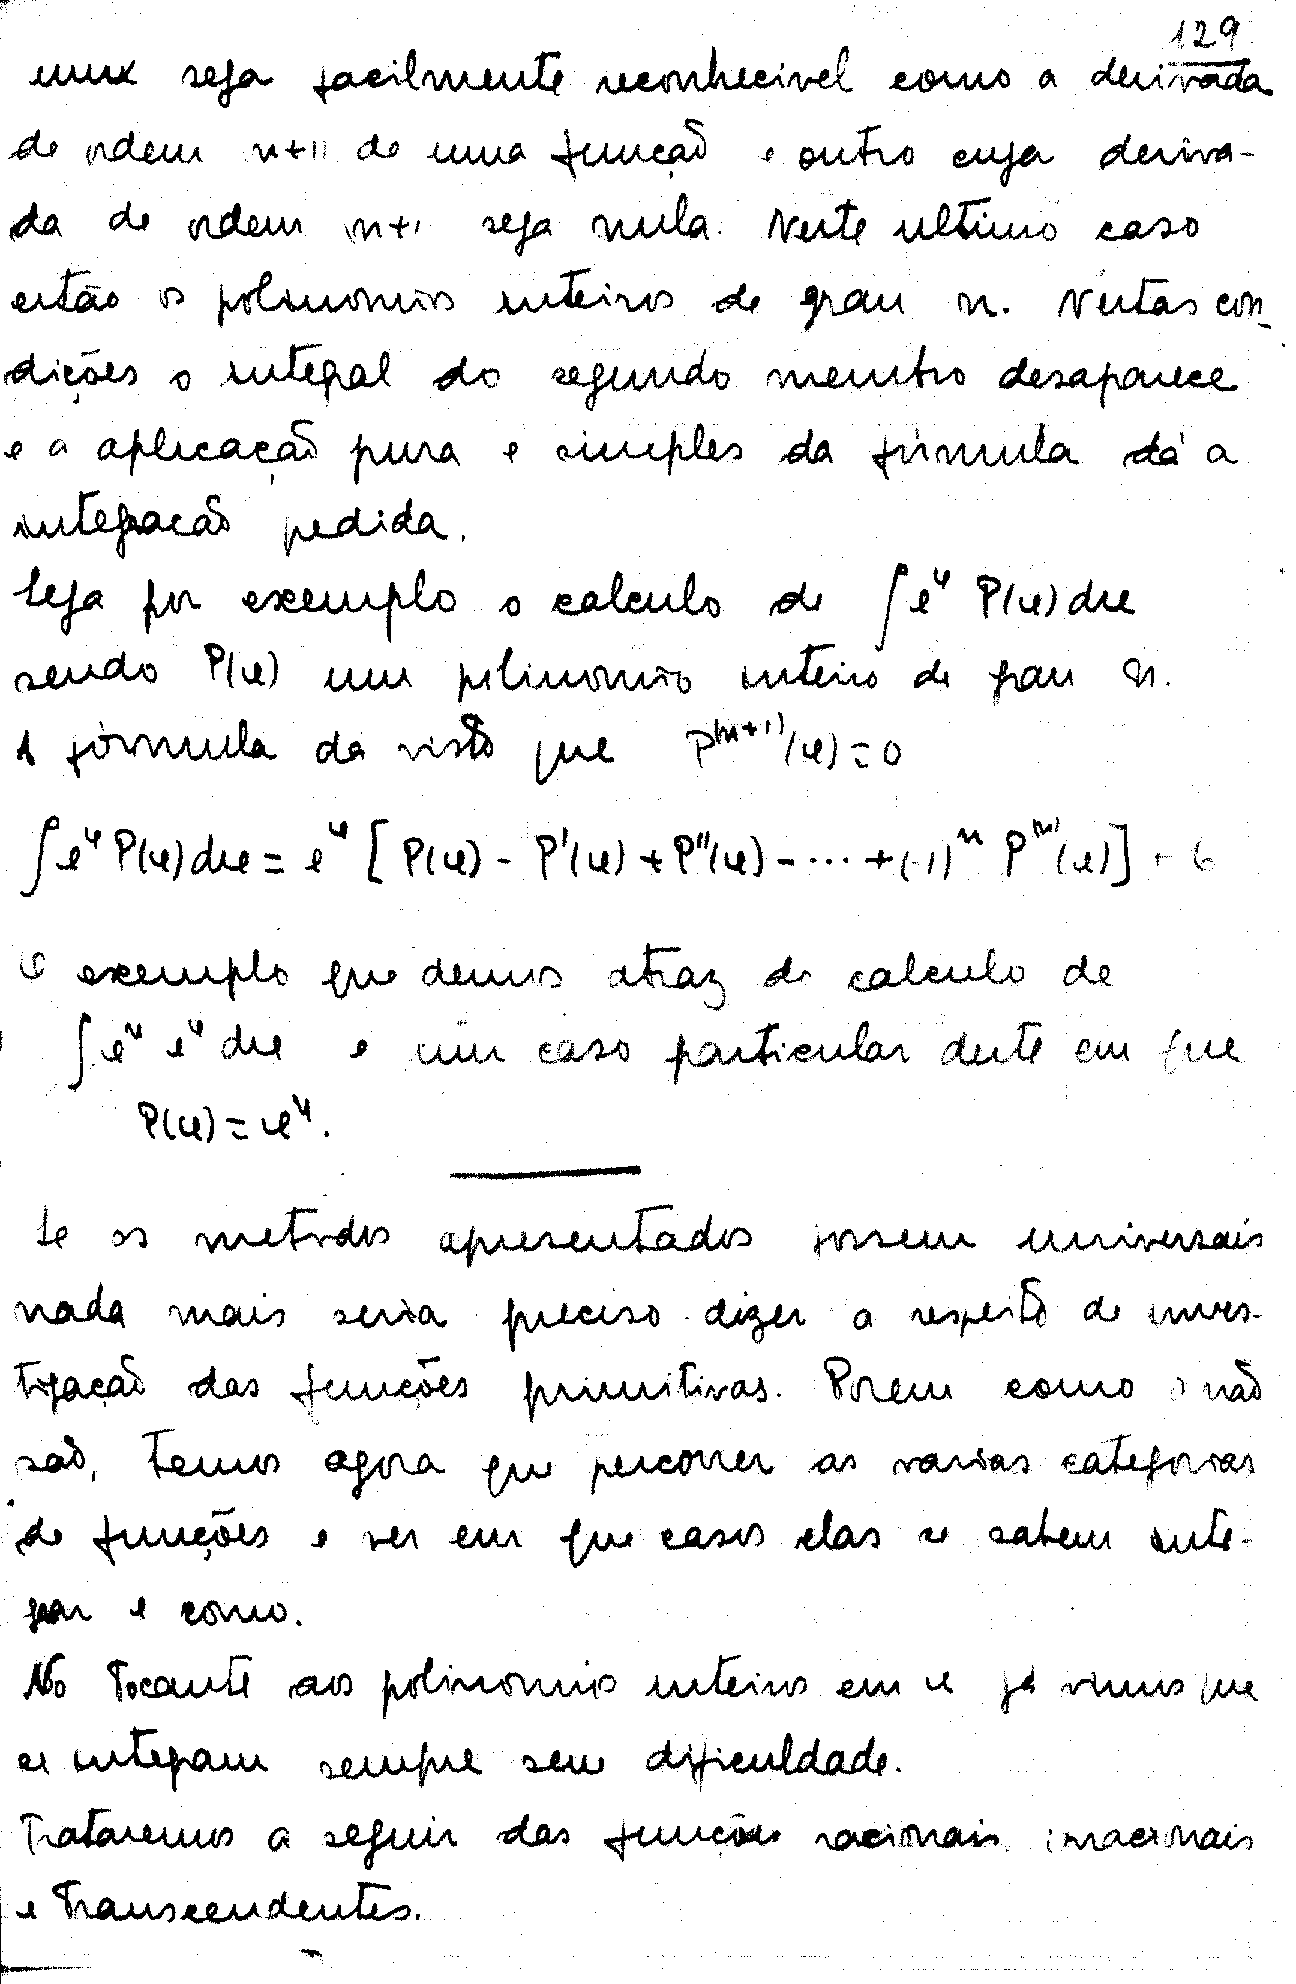 129
um seja facilmente reconhecivel como a derivada
de ordem n+1 de uma função e outro cuja deriva-
da de ordem n+1 seja nula. Neste ultimo caso
estão os polinomios inteiros de grau n. Nestas con-
dições o integral do segundo membro desaparece
e a aplicação pura e simples da fórmula dá a
integração pedida.
Seja por exemplo o calculo de ∫eˣ P(x)dx
sendo P(x) um polinomio inteiro de grau n.
A fórmula da visto que P⁽ⁿ⁺¹⁾(x)=0
∫eˣ P(x)dx = eˣ [P(x) - P'(x) + P''(x) - ... + (-1)ⁿ P⁽ⁿ⁾(x)] + C
O exemplo que demos atraz do calculo de
∫eˣ xⁿ dx e um caso particular deste em que
P(x) = xⁿ.
Se os metodos apresentados fossem universais
nada mais seria preciso dizer a respeito de inves-
tigação das funções primitivas. Porem como o não
são, temos agora que percorrer as varias categorias
de funções e ver em que casos elas se sabem inte-
grar e como.
No tocante aos polinomios inteiros em x já vimos que
se integram sempre sem dificuldade.
Trataremos a seguir das funções racionais irracionais
e transcendentes.